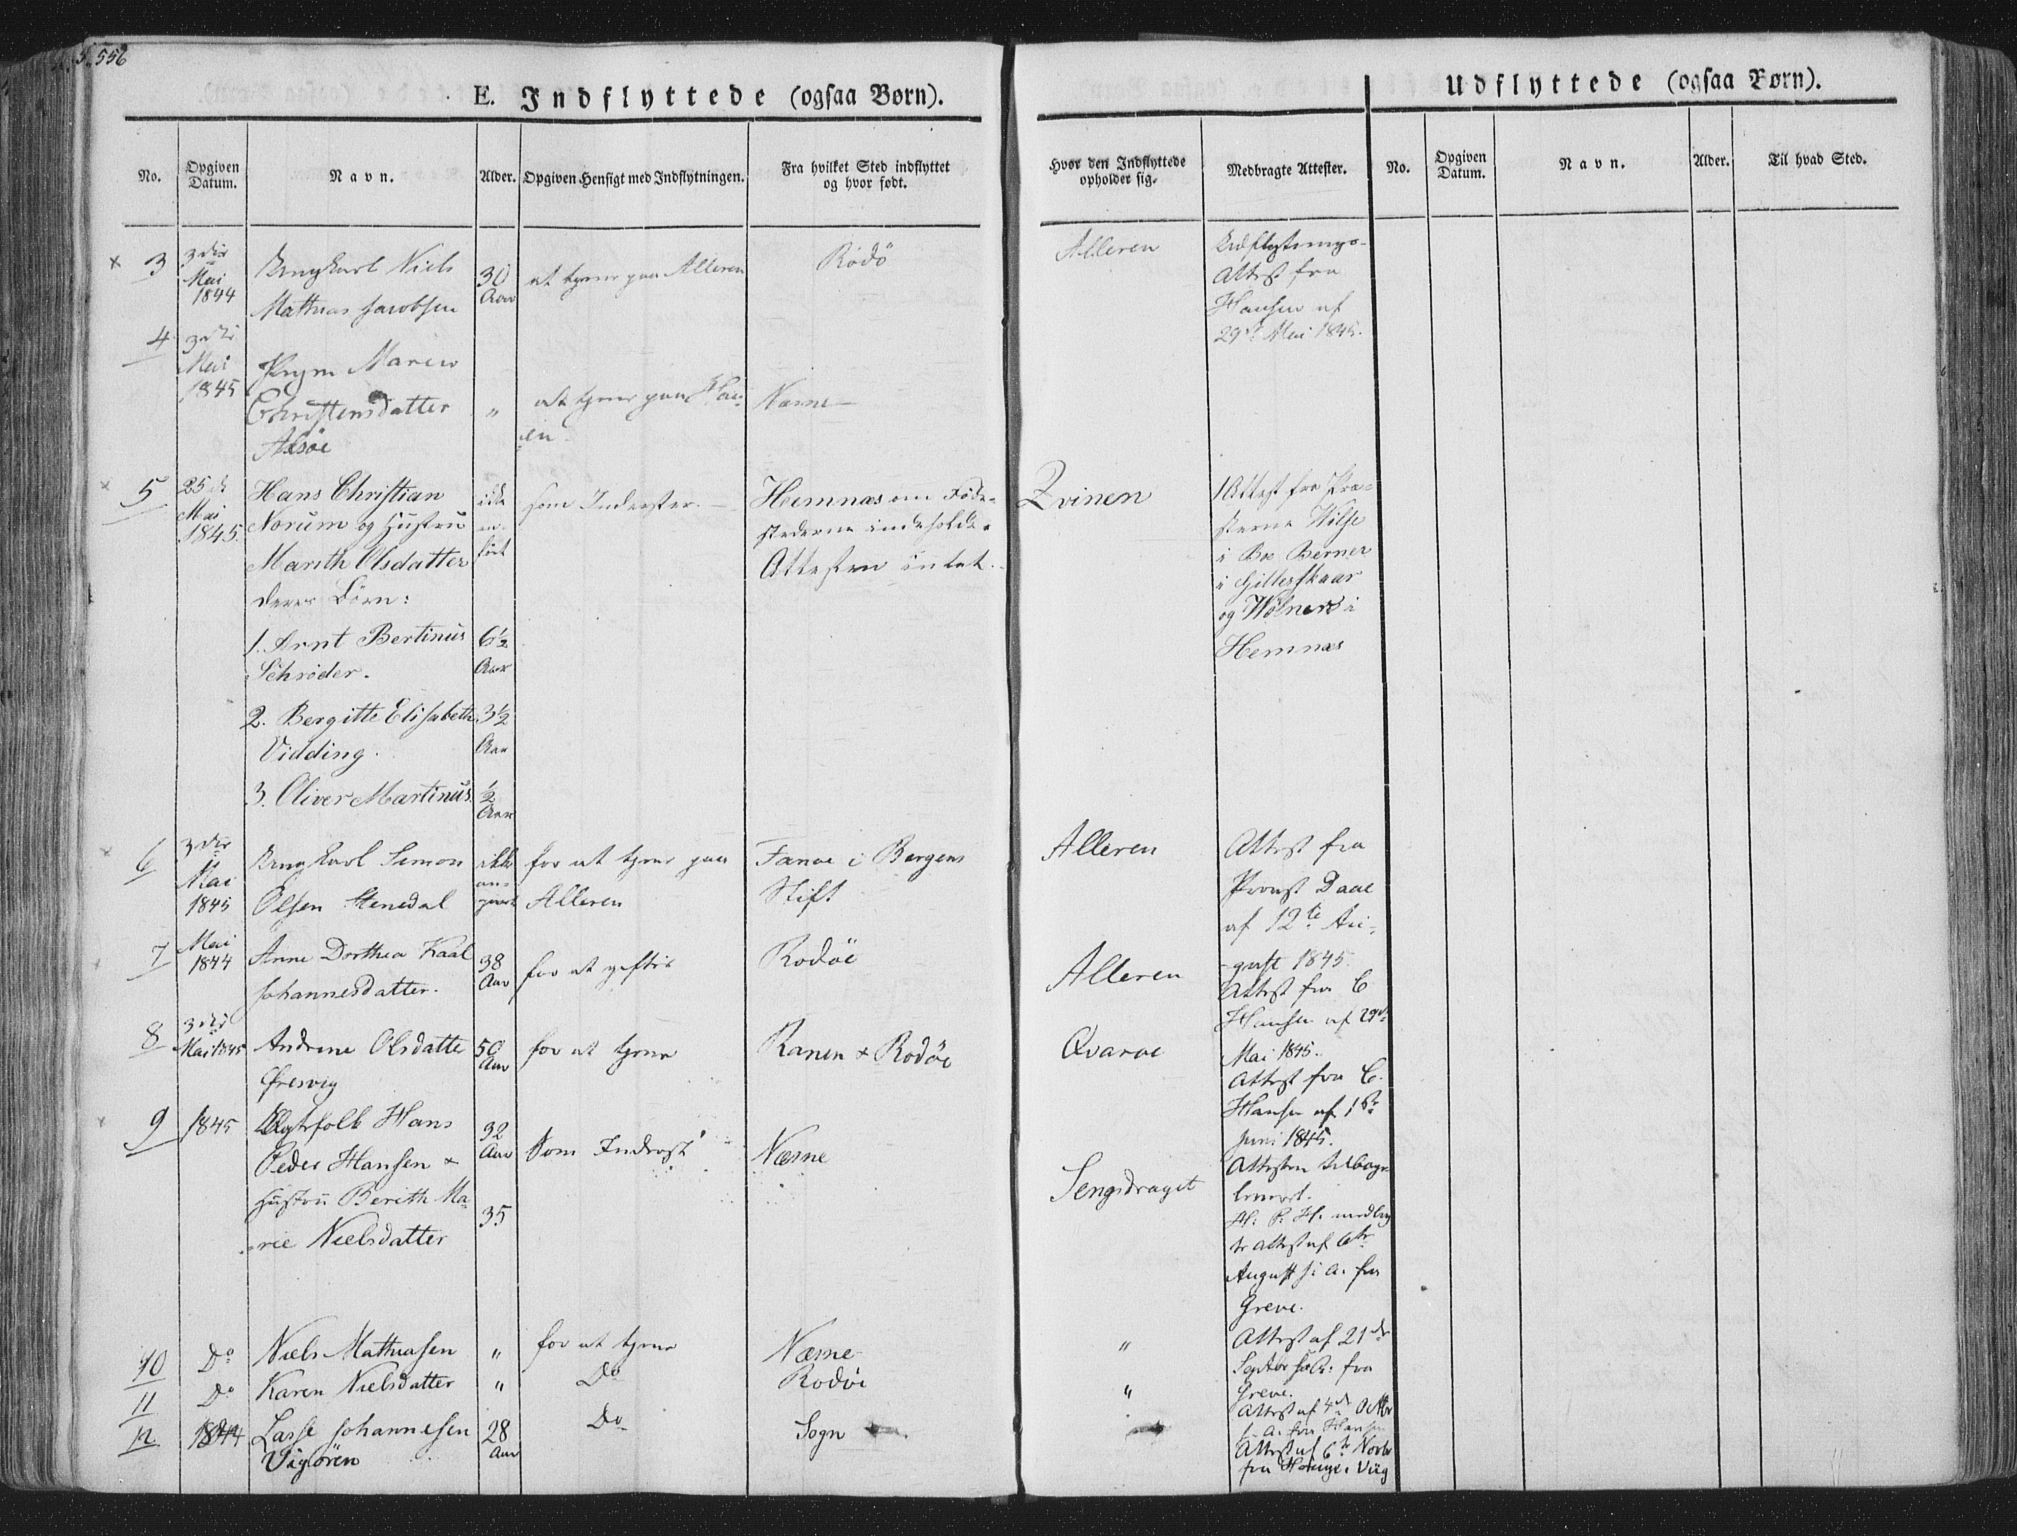 556
E. Indflyttede (ogsaa Børn).
No.
Opgiven Datum.
Navn.
Alder.
Opgiven Hensigt med Indflytningen.
Fra hvilket Sted indflyttet
og hvor født.
Hvor den Indflyttede
opholder sig.
Medbragte Attester.
Udflyttede (ogsaa Børn).
No.
Opgiven Datum.
Navn.
Alder.
Til hvad Sted.
3
3die
Mai
1844
Ungkarl Niels
Mathias Jacobsen
30
Aar
at tjene paa Alleren
Rödö
Alleren
Udflytnings-
Attest fra
Hansen af
29de Mai 1845.
4
3die
Mai
1845
Marie
Christensdatter
Alsöe
"
at tjene paa
Næsne
5
25de
Mai
1845.
Hans Christian
Norum og Hustru
Marith Olsdatter
deres Börn:
1. Arnt Bertinus
Schröder.
2. Bergitte Elisabeth
Vidding.
3. Oliver Martinus
ikke
an-
ført
6½
Aar
3½
Aar
½
Aar
som Inderster.
Hemnæs om Föde-
stederne indeholdt
Attesten intet.
Qvinen
Attest fra Præ-
sterne Wilse
i Boe Berner
i Gilleskaar
og Wolner i
Hemnæs
6
3die
Mai
1845
Ungkarl Simon
Olsen Stenedal
ikke
an-
givet
for at tjene paa
Alleren
Fanöe i Bergens
Stift
Alleren
Attest fra
Provst Daae
af 12te Au-
gust 1845.
7
Mai
1844
Anne Dorthea Kaal
Johannesdatter.
38
Aar
for at giftes
Rodöe
Alleren
Attest fra C
Hansen af 29de
Mai 1845.
8
3die
Mai 1845
Andrine Olsdatter
Öresvig
50
Aar
for at tjene
Ranen & Rodöe
Qvaroe
Attest fra C.
Hansen af 1ste
Juni 1845.
9
1845
Ægtefolk Hans
Peder Hansen &
Hustru Berith Ma-
rie Nielsdatter
32
Aar
35
Som Inderst
Næsne
Sengsdraget
Attesten tilbage
leveret.
H. P. H. medbrag
te Attest af 6te
August s: A. fra
Greve.
10
Do
Niels Mathiasen
"
for at tjene
Næsne
"
Attest af 21de
Septbr s. A. fra
Greve.
11
Do
Karen Nielsdatter
"
Do
Rodöe
"
Attest af 4de Octbr
s. A. fra Hansen
12
1844
Lasse Johannesen
Vigören
28
Aar
Do
Sogn
Attest af 6te Novbr
fra Hauge i Viig